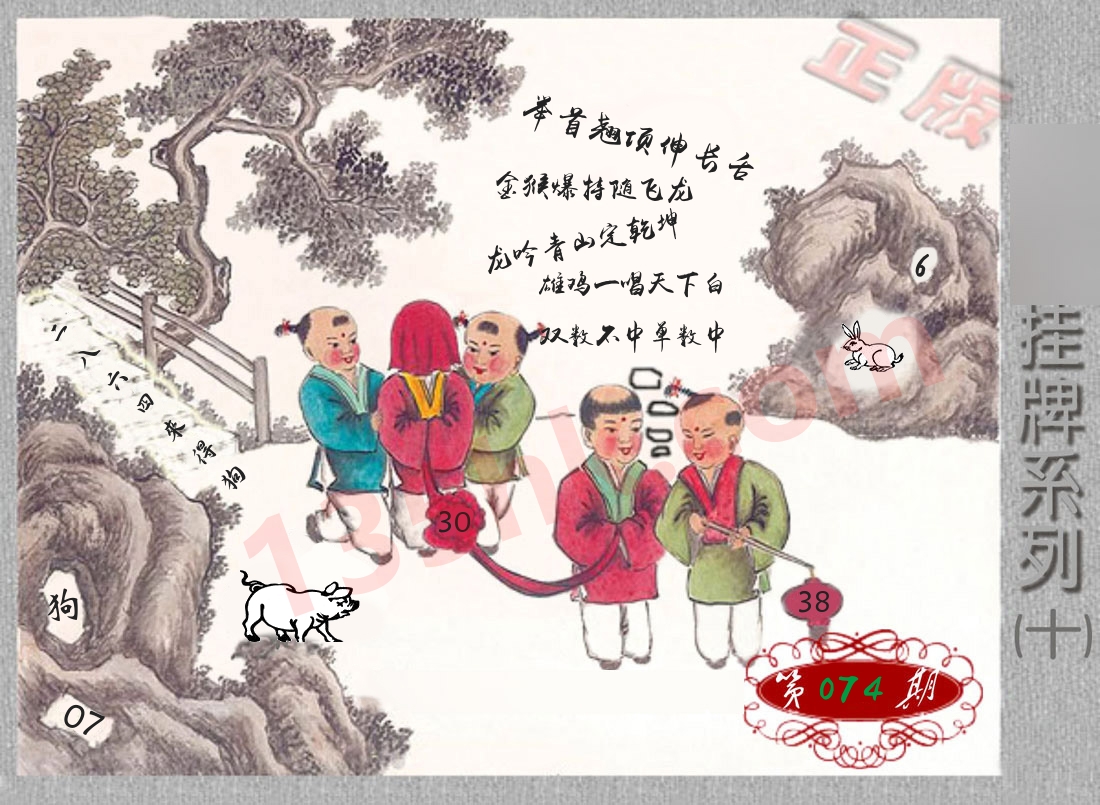 正版
举首翘项伸长舌
金猴爆持随飞龙
龙吟青山定乾坤
雄鸡一唱天下白
双数不中单数中
6
二八六四来得狗
30
38
狗
07
第074期
挂牌系列(十)